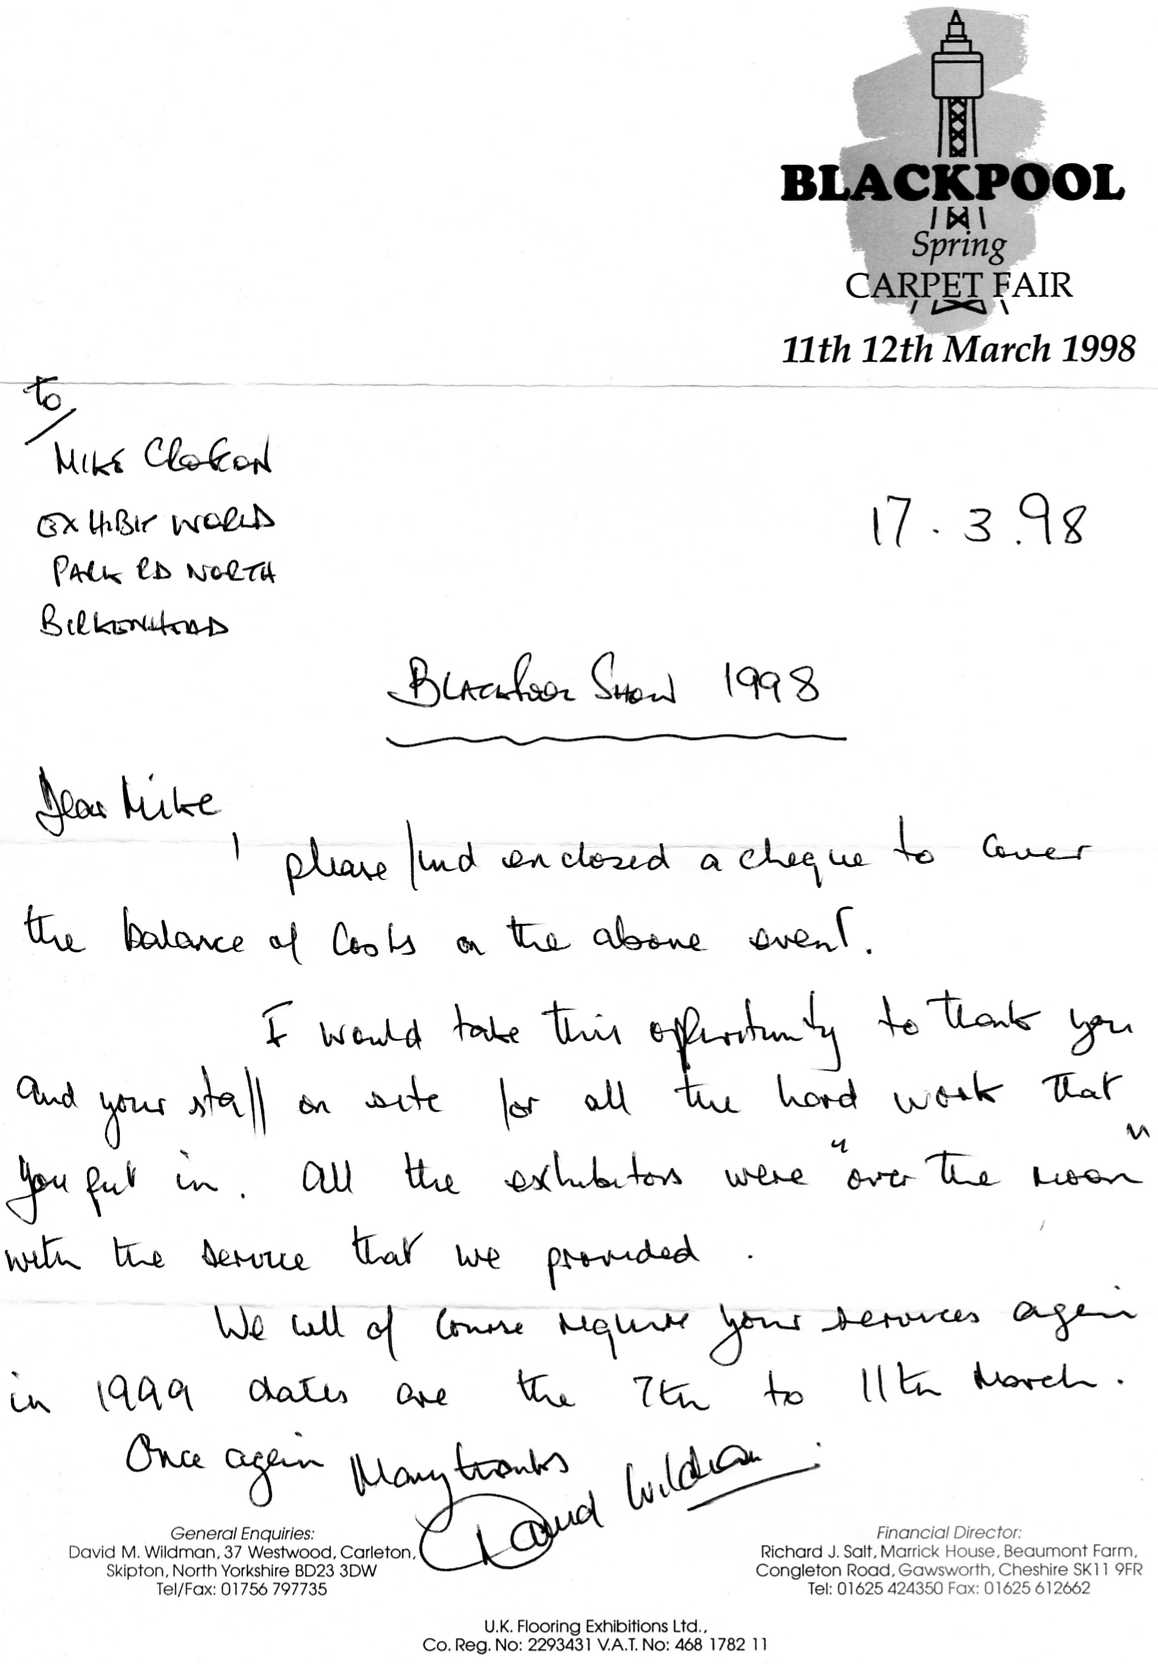 BLACKPOOL
Spring
CARPET FAIR
11th 12th March 1998
to
MIKE
EXHIBIT WORLD
PARK RD NORTH
BIRKENHEAD
17.3.98
BLACKPOOL SHOW 1998
Dear Mike
please find enclosed a cheque to cover
the balance of costs on the above event.
I would take this opportunity to thank you
and your staff on site for all the hard work that
you put in. All the exhibitors were "over the moon"
with the service that we provided.
We will of course require your services again
in 1999 dates are the 7th to 11th March.
Once again Many thanks
David Wildman
General Enquiries:
David M. Wildman, 37 Westwood, Carleton,
Skipton, North Yorkshire BD23 3DW
Tel/Fax: 01756 797735
Financial Director:
Richard J. Salt, Marrick House, Beaumont Farm,
Congleton Road, Gawsworth, Cheshire SK11 9FR
Tel: 01625 424350 Fax: 01625 612662
U.K. Flooring Exhibitions Ltd.,
Co. Reg. No: 2293431 V.A.T. No: 468 1782 11